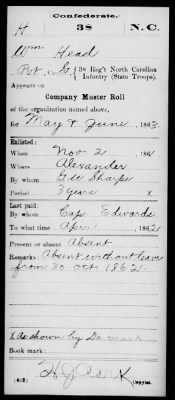 Confederate.
H 38 N.C.
Wm Head
Pvt, Co. G, 38 Reg't North Carolina
Infantry (State Troops).
Appears on
Company Muster Roll
of the organization named above,
for May & June, 1863.
Enlisted:
When Nov 2, 186
Where Alexander
By whom G. W. Sharpe
Period 3 years
Last paid:
By whom Cap. Edwards
To what time Apr 1, 1862
Present or absent Absent
Remarks: Absent without leave
from 30 Oct 1862
x As shown by
Book mark:
H. J. Cark
(642) Copyist.